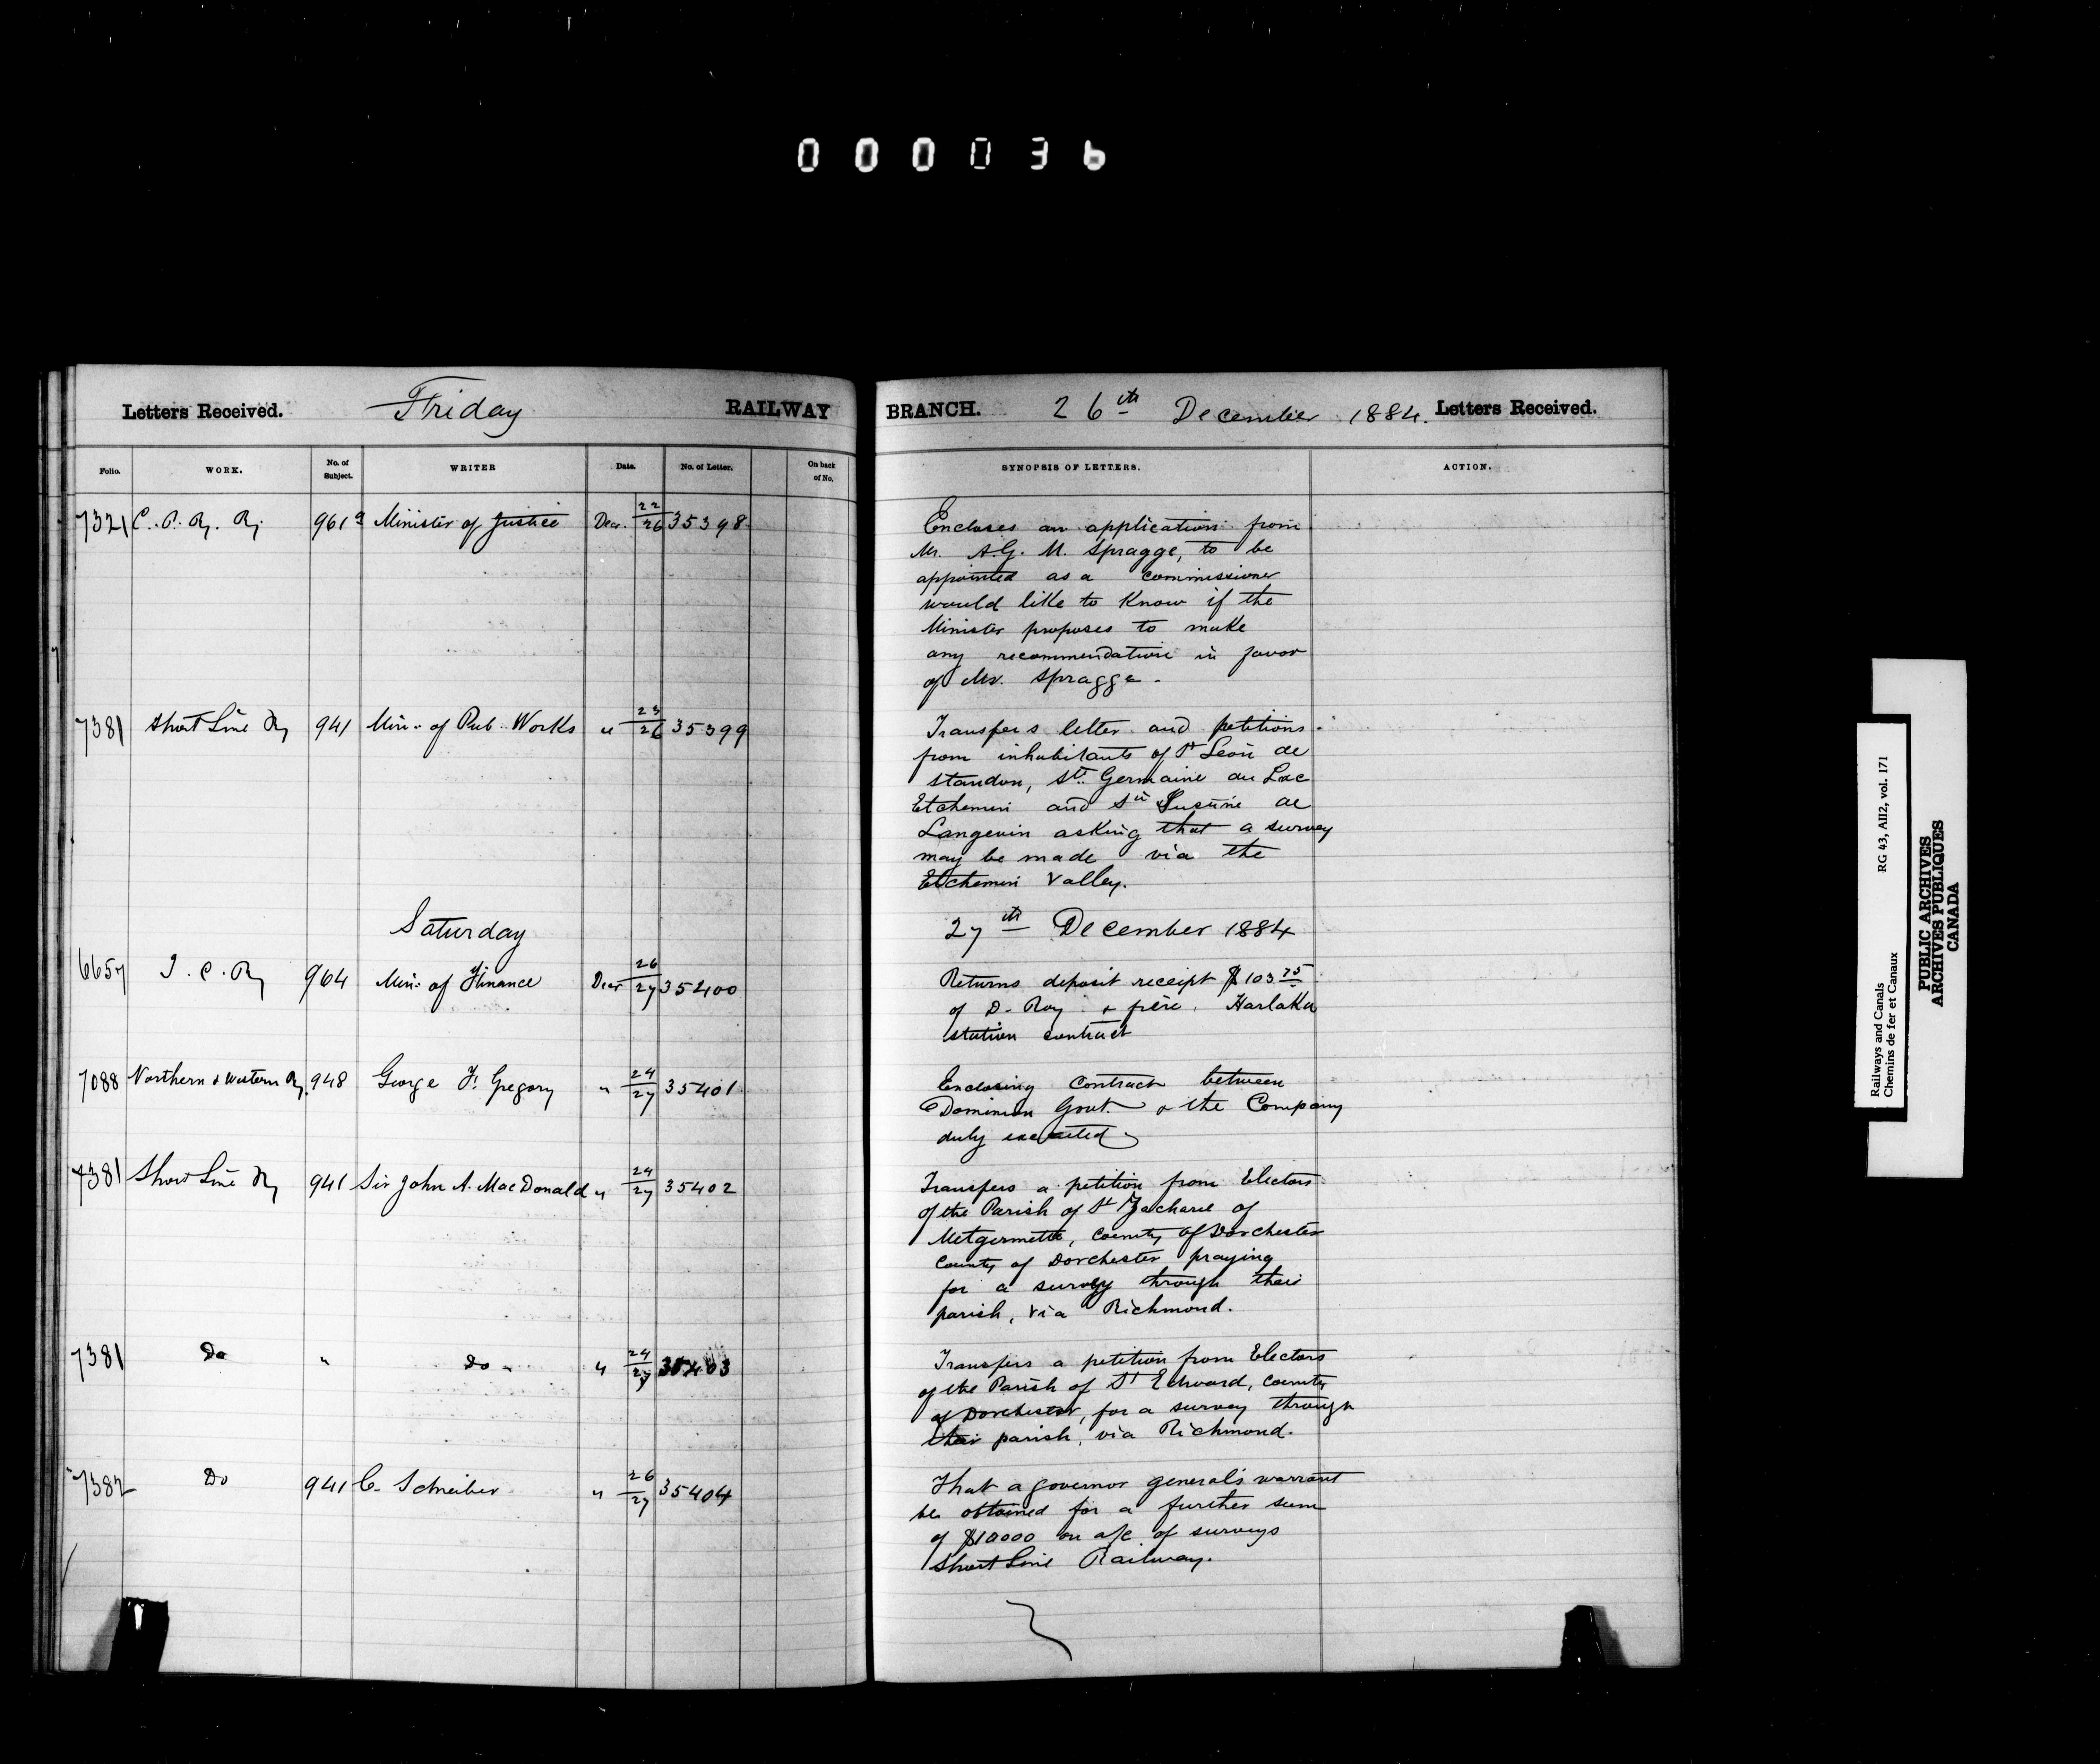 000036
Letters Received. Friday RAILWAY BRANCH. 26th December 1884. Letters Received.
Folio. WORK. No. of Subject. WRITER Date. No. of Letter. On back of No. SYNOPSIS OF LETTERS. ACTION.
7321 C. P. Ry. Ry. 961a Minister of Justice Decr. 22/26 35398
Encloses an application from
Mr. A.G. M. Spragge, to be
appointed as a commissioner
would like to know if the
Minister proposes to make
any recommendation in favor
of Mr. Spragge.
7381 Short Line Ry 941 Min. of Pub. Works " 23/26 35399
Transfers letter and petitions
from inhabitants of St Leon de
Standon, Ste. Germaine du Lac
Etchemin and Ste Justine de
Langevin asking that a survey
may be made via the
Etchemin Valley.
Saturday 27th December 1884
6657 I. C. Ry 964 Min. of Finance Decr 26/27 35400
Returns deposit receipt $103 75
of D. Roy & frère. Harlaka
station contract
7088 Northern & Western Ry. 948 George F. Gregory " 24/27 35401
Enclosing contract between
Dominion Govt. & the Company
duly executed
7381 Short Line Ry 941 Sir John A. MacDonald " 24/27 35402
Transfers a petition from Electors
of the Parish of St Zacharie of
Metgermette, County of Dorchester
County of Dorchester praying
for a survey through their
parish, via Richmond.
7381 Do " Do " 24/27 35403
Transfers a petition from Electors
of the Parish of St Edward, County
of Dorchester, for a survey through
their parish, via Richmond.
7382 Do 941 C. Schreiber " 26/27 35404
That a governor general's warrant
be obtained for a further sum
of $10000 on a/c of surveys
Short Line Railway.
Railways and Canals RG 43, AII2, vol. 171
Chemins de fer et Canaux
PUBLIC ARCHIVES
ARCHIVES PUBLIQUES
CANADA